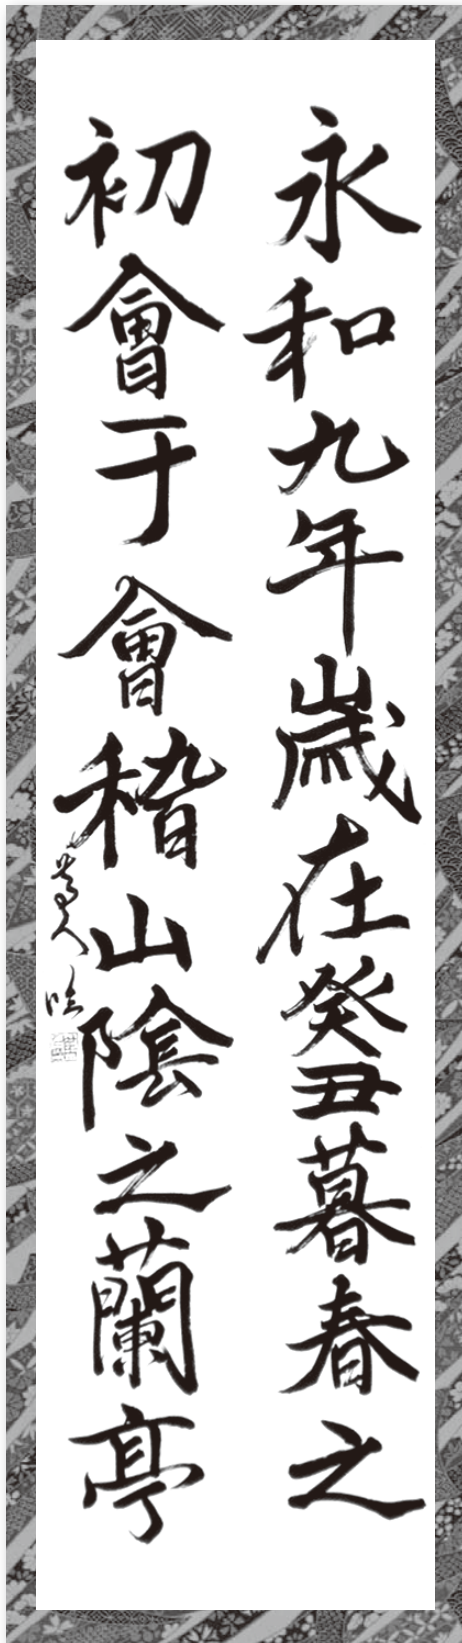 永和九年歳在癸丑暮春之
初會于會稽山陰之蘭亭